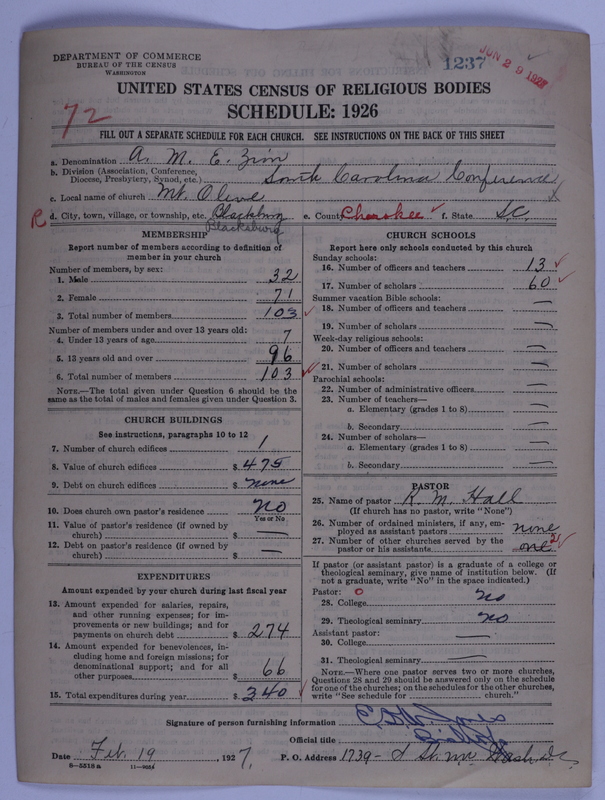 DEPARTMENT OF COMMERCE
BUREAU OF THE CENSUS
WASHINGTON
1237
JUN 29 1927
UNITED STATES CENSUS OF RELIGIOUS BODIES
SCHEDULE: 1926
72
FILL OUT A SEPARATE SCHEDULE FOR EACH CHURCH. SEE INSTRUCTIONS ON THE BACK OF THIS SHEET
a. Denomination A. M. E. Zion
b. Division (Association, Conference, Diocese, Presbytery, Synod, etc.) South Carolina Conference
c. Local name of church Mt. Olive
R d. City, town, village, or township, etc. Blacksburg e. County Cherokee f. State S.C.
Blacksburg
MEMBERSHIP
Report number of members according to definition of
member in your church
Number of members, by sex:
1. Male 32
2. Female 71
3. Total number of members 103
Number of members under and over 13 years old:
4. Under 13 years of age 7
5. 13 years old and over 96
6. Total number of members 103
NOTE.—The total given under Question 6 should be the
same as the total of males and females given under Question 3.
CHURCH BUILDINGS
See instructions, paragraphs 10 to 12
7. Number of church edifices 1
8. Value of church edifices $ 475
9. Debt on church edifices $ none
10. Does church own pastor's residence no
Yes or No
11. Value of pastor's residence (if owned by
church) $ —
12. Debt on pastor's residence (if owned by
church) $ —
EXPENDITURES
Amount expended by your church during last fiscal year
13. Amount expended for salaries, repairs,
and other running expenses; for im-
provements or new buildings; and for
payments on church debt $ 274
14. Amount expended for benevolences, in-
cluding home and foreign missions; for
denominational support; and for all
other purposes $ 66
15. Total expenditures during year $ 340
CHURCH SCHOOLS
Report here only schools conducted by this church
Sunday schools:
16. Number of officers and teachers 13
17. Number of scholars 60
Summer vacation Bible schools:
18. Number of officers and teachers —
19. Number of scholars —
Week-day religious schools:
20. Number of officers and teachers —
21. Number of scholars —
Parochial schools:
22. Number of administrative officers —
23. Number of teachers—
a. Elementary (grades 1 to 8) —
b. Secondary —
24. Number of scholars—
a. Elementary (grades 1 to 8) —
b. Secondary —
PASTOR
25. Name of pastor R. M. Hall
(If church has no pastor, write "None")
26. Number of ordained ministers, if any, em-
ployed as assistant pastors none
27. Number of other churches served by the
pastor or his assistants one 2
If pastor (or assistant pastor) is a graduate of a college or
theological seminary, give name of institution below. (If
not a graduate, write "No" in the space indicated.)
Pastor: 0
28. College no
29. Theological seminary no
Assistant pastor:
30. College —
31. Theological seminary —
NOTE.—Where one pastor serves two or more churches,
Questions 28 and 29 should be answered only on the schedule
for one of the churches; on the schedules for the other churches,
write "See schedule for church."
Signature of person furnishing information Jones
Official title Bishop
Date Feb. 19, 1927. P. O. Address 1739- St. nw Wash DC
8—5518 a 11—9034